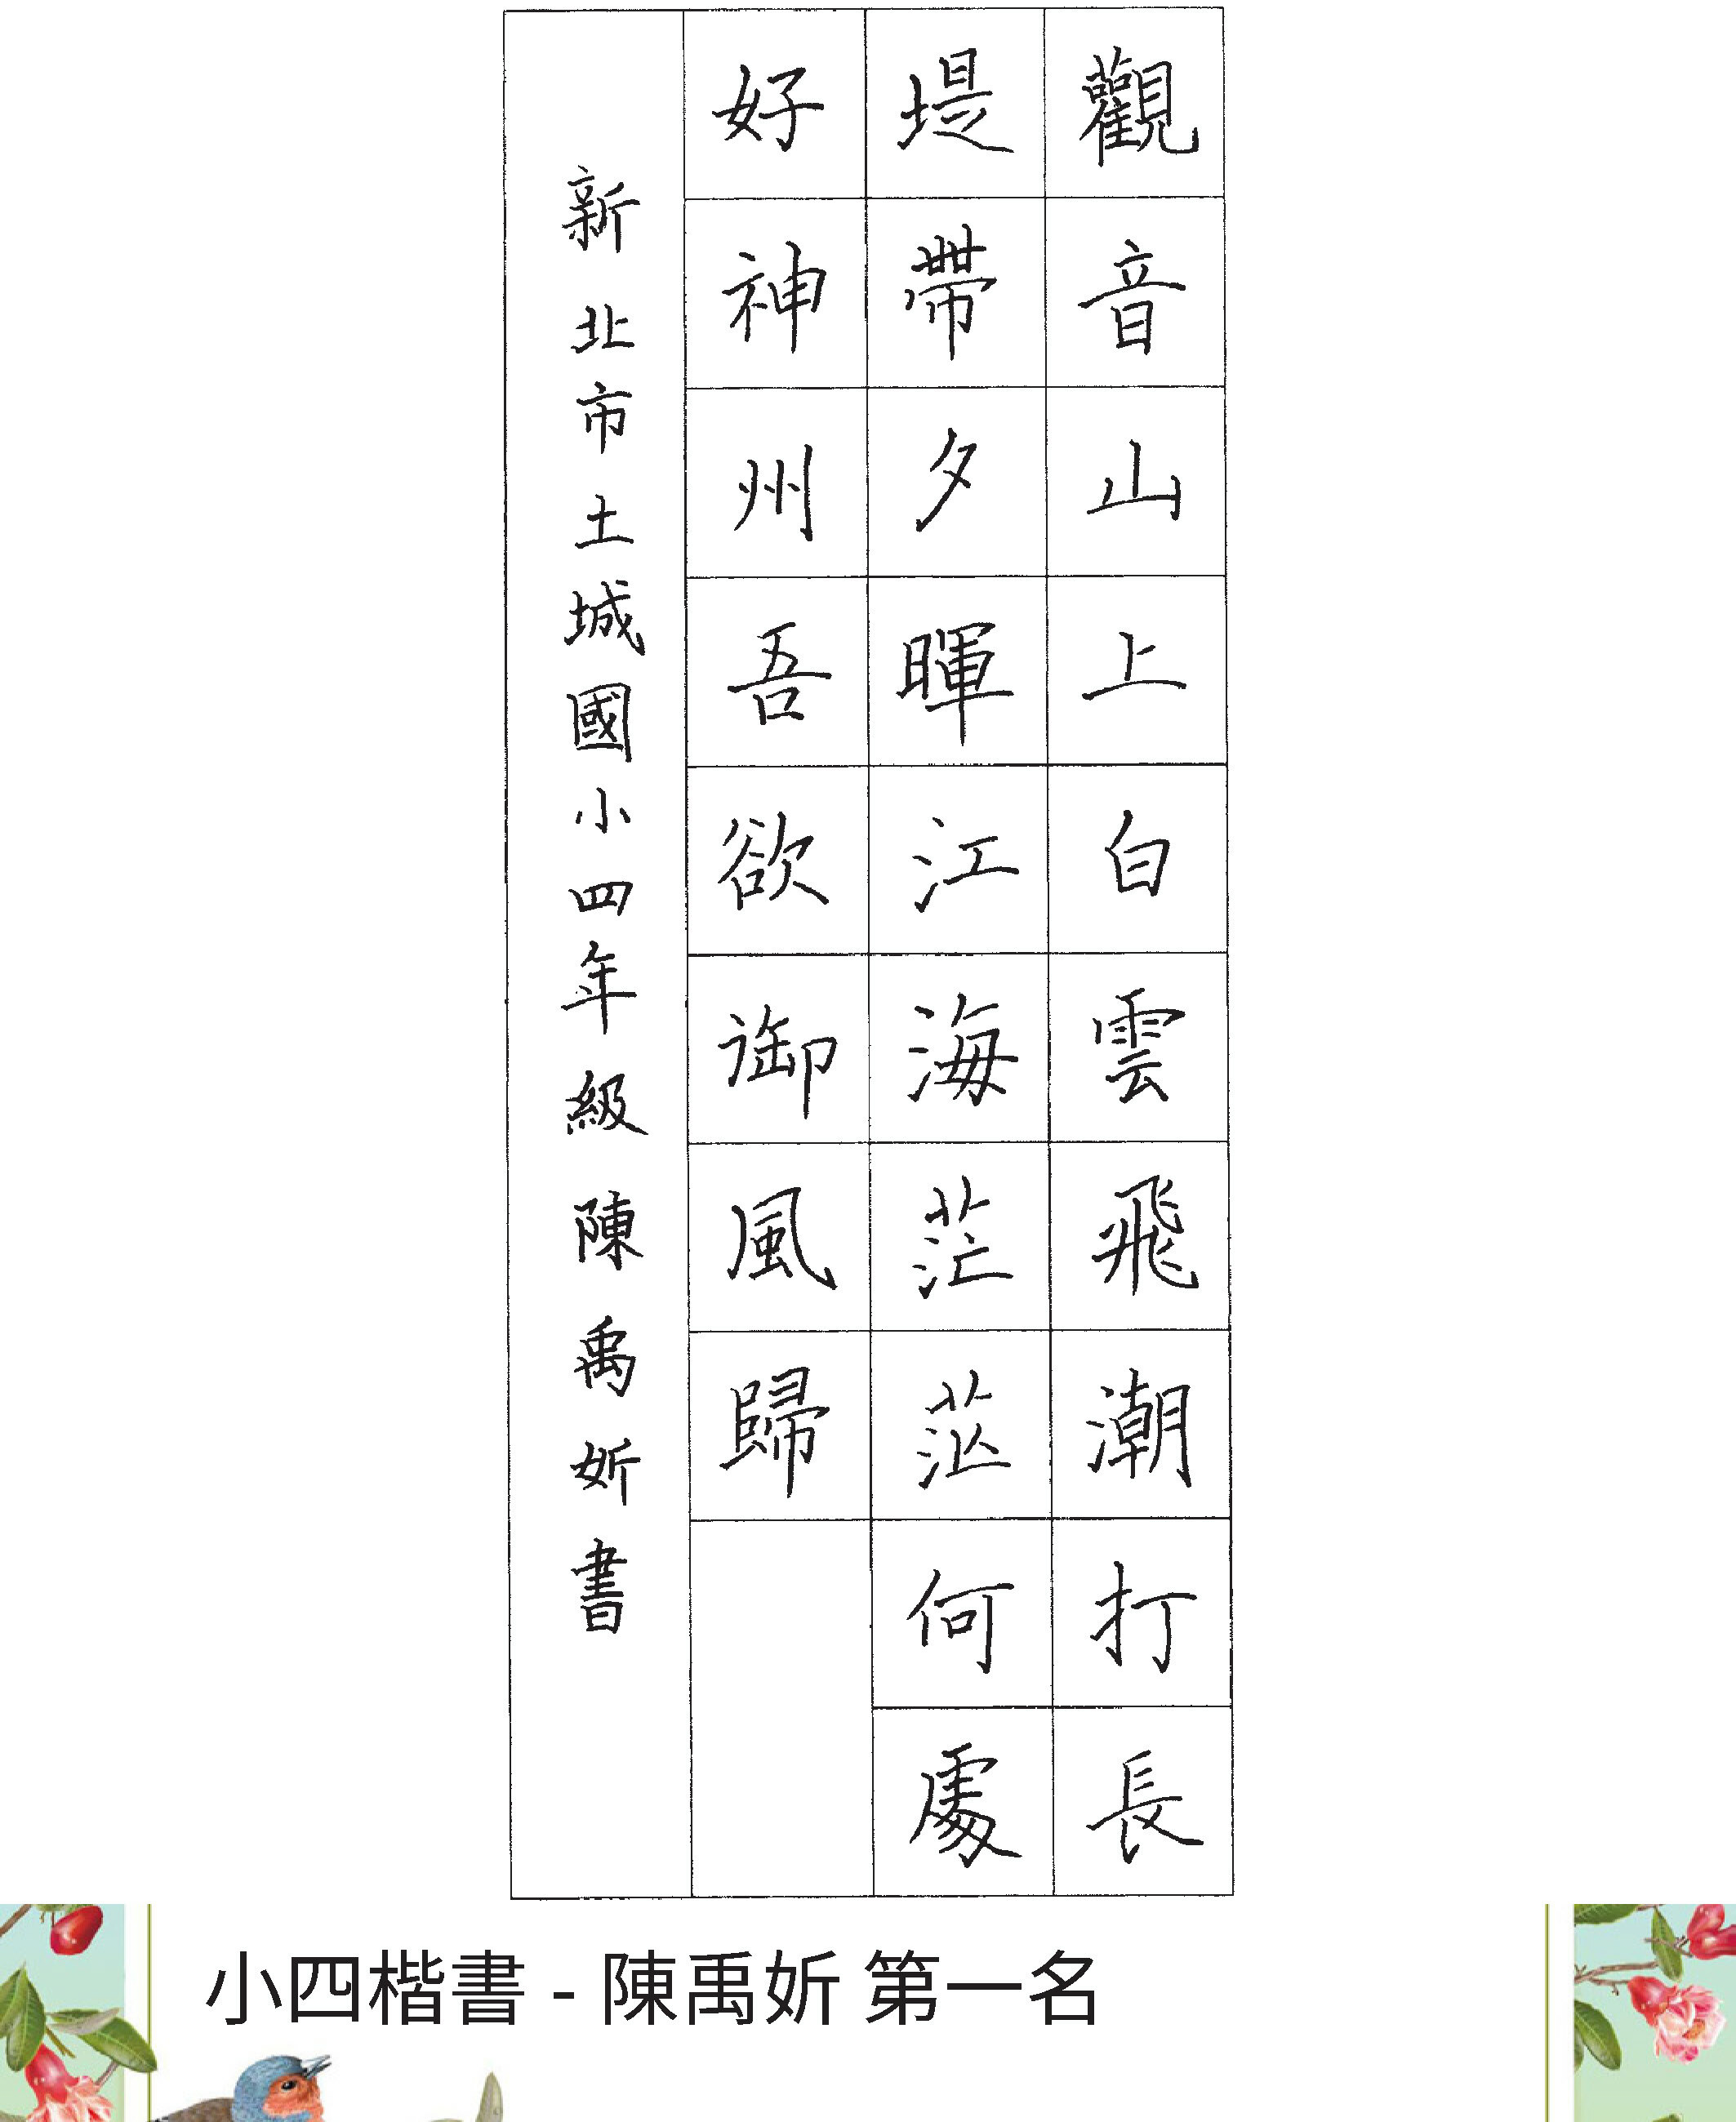 觀音山上白雲飛潮打長
堤帶夕暉江海茫茫何處
好神州吾欲御風歸
新北市土城國小四年級陳禹妡書
小四楷書 - 陳禹妡 第一名